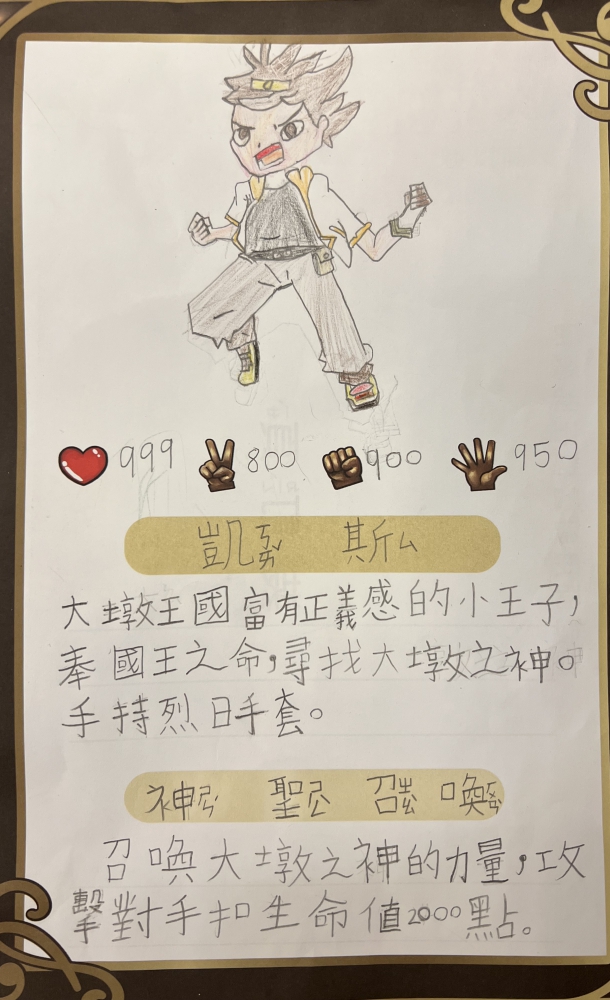 999 800 900 950
凱ㄎㄞˇ 斯ㄙ
大墩王國富有正義感的小王子,
奉國王之命,尋找大墩之神。
手持烈日手套。
神ㄕㄣˊ 聖ㄕㄥˋ 召ㄓㄠˋ 喚ㄏㄨㄢˋ
召喚大墩之神的力量,攻
擊對手扣生命值2000點。